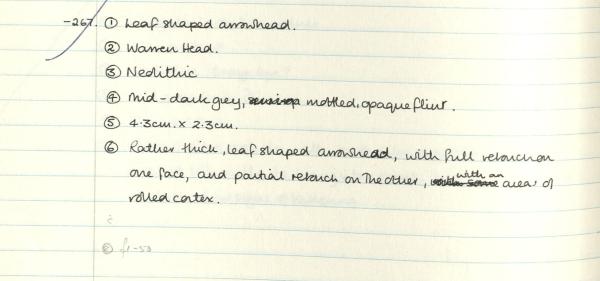 -267. ① Leaf shaped arrowhead.
② Warren Head.
③ Neolithic
④ Mid-dark grey, mottled, opaque flint.
⑤ 4.3cm. x 2.3cm.
⑥ Rather thick, leaf shaped arrowhead, with full retouch on
one face, and partial retouch on the other, with an area of
rolled cortex.